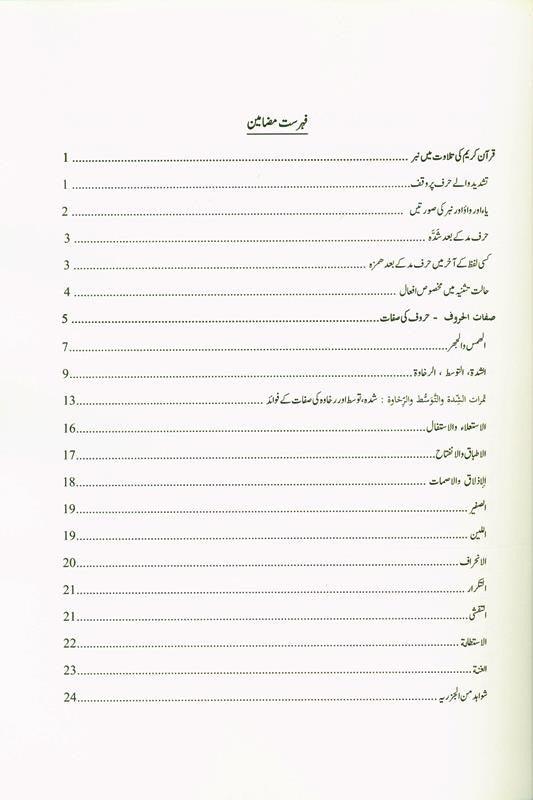 فہرست مضامین
قرآن کریم کی تلاوت میں نبر ........ 1
تشدید والے حرف پر وقف ........ 1
یاء اور واؤ اور نبر کی صورتیں ........ 2
حرف مد کے بعد شَدَّہ ........ 3
کسی لفظ کے آخر میں حرف مد کے بعد ھمزہ ........ 3
حالت تثنیہ میں مخصوص افعال ........ 4
صفات الحروف - حروف کی صفات ........ 5
الھمس والجھر ........ 7
الشدة، التوسط ، الرخاوة ........ 9
ثمرات الشِّدة والتَّوسُّط والرِّخاوة : شدہ، توسط اور رخاوہ کی صفات کے فوائد ........ 13
الاستعلاء والاستفال ........ 16
الاطباق والانفتاح ........ 17
الإذلاق والاصمات ........ 18
الصفیر ........ 19
اللین ........ 19
الانحراف ........ 20
التکرار ........ 21
التفشی ........ 21
الاستطالة ........ 22
الغنة ........ 23
شواہد من الجزریہ ........ 24